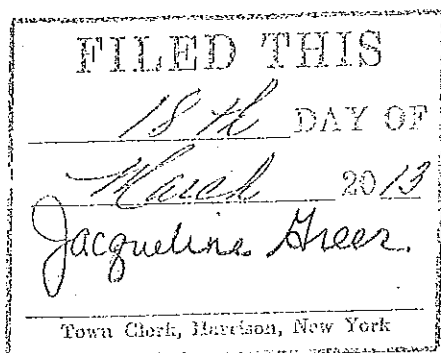 FILED THIS
18th DAY OF
March 2013
Jacqueline Greer.
Town Clerk, Harrison, New York